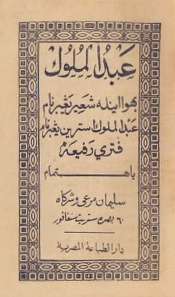 عبد الملوك
بهوا اينله شعير يڠبرنام
عبد الملوك استرين يڠبرنام
فتري رفيعه
باهتمام
سليمان مرعي وشركاه
٦٠ بصره ستريت سڠافور
دار الطباعة المصرية